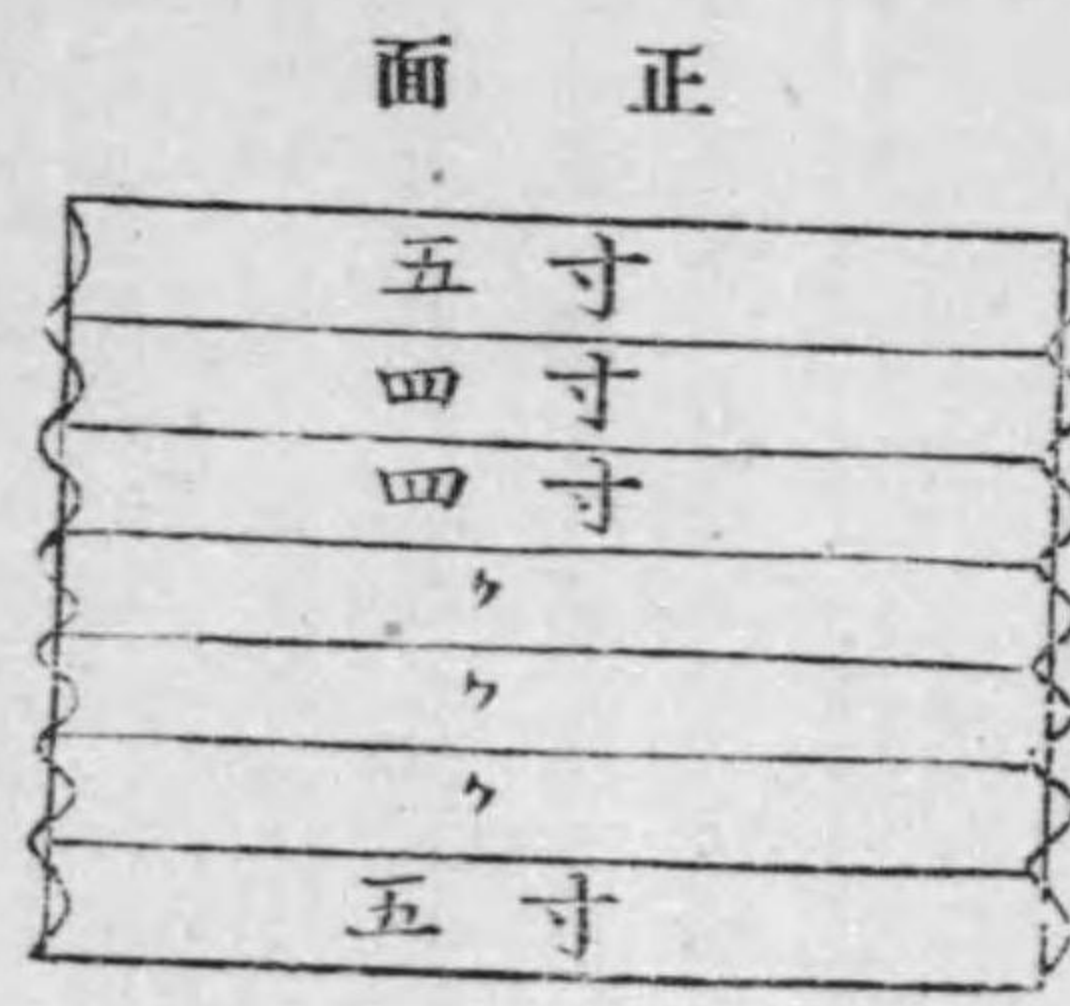 正面
五寸
四寸
四寸
〃
〃
〃
五寸